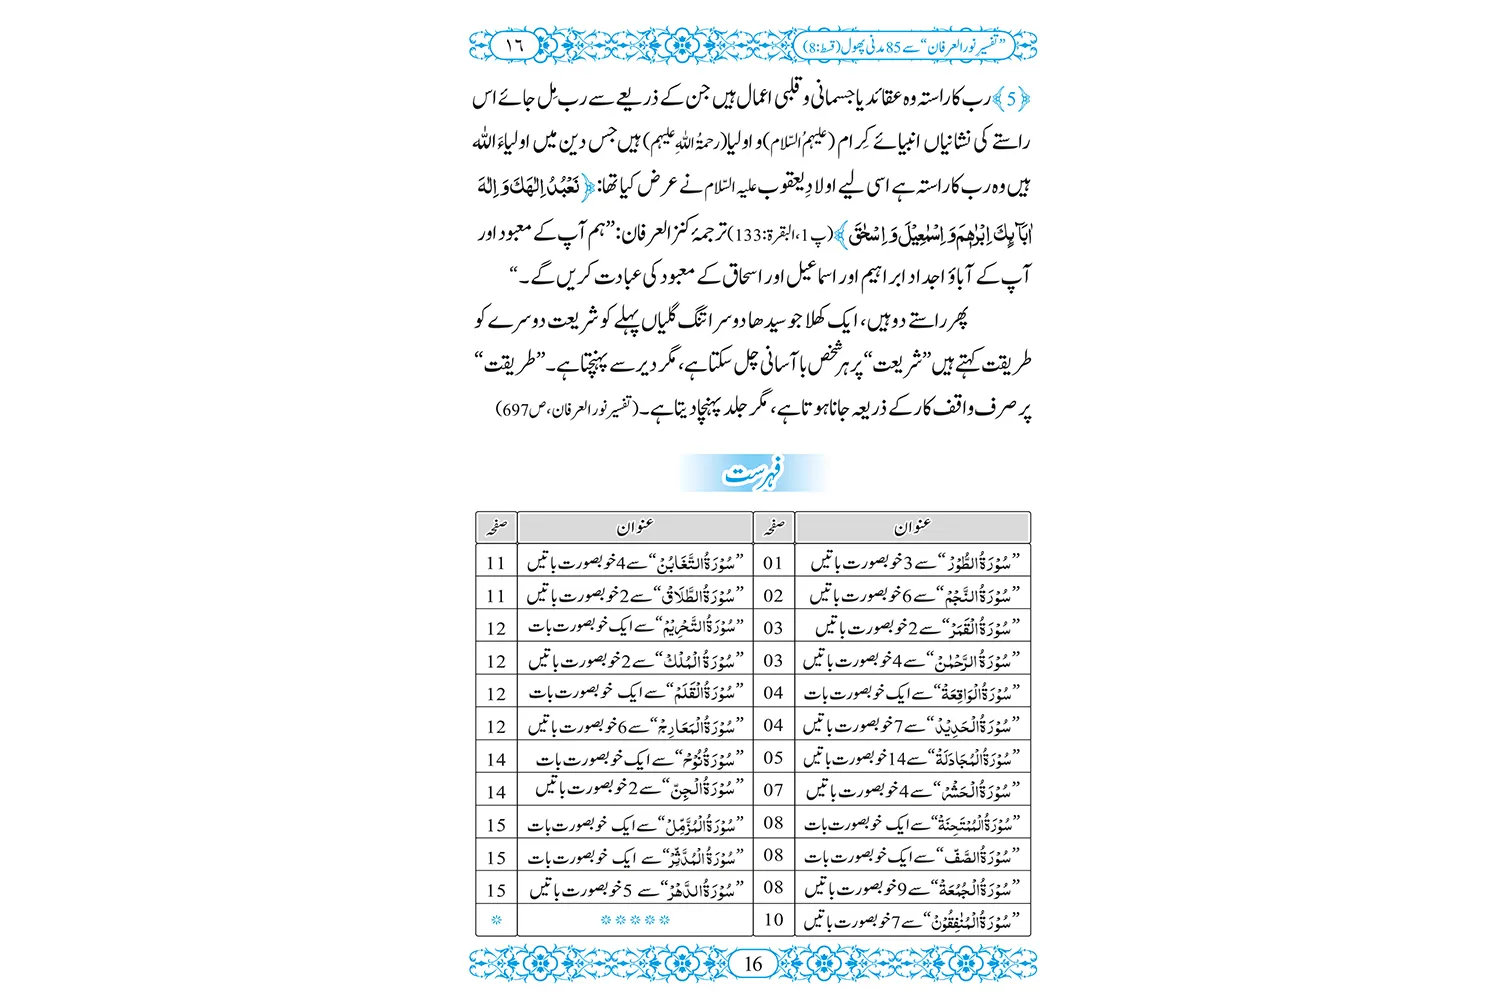 ”تفسیر نورالعرفان“ سے 85 مدنی پھول (قسط:8)
۱٦
﴿5﴾ رب کا راستہ وہ عقائد یا جسمانی و قلبی اعمال ہیں جن کے ذریعے سے رب مِل جائے اس
راستے کی نشانیاں انبیائے کِرام (علیہمُ السّلام) و اولیا (رحمۃُ اللہِ علیہم) ہیں جس دین میں اولیاءَ اللہ
ہیں وہ رب کا راستہ ہے اسی لیے اولادِ یعقوب علیہ السّلام نے عرض کیا تھا: ﴿نَعْبُدُ اِلٰهَكَ وَ اِلٰهَ
اٰبَآىٕكَ اِبْرٰهٖمَ وَ اِسْمٰعِیْلَ وَ اِسْحٰقَ﴾ (پ1، البقرۃ:133) ترجمۂ کنز العرفان: ”ہم آپ کے معبود اور
آپ کے آباؤ اجداد ابراہیم اور اسماعیل اور اسحاق کے معبود کی عبادت کریں گے۔“
پھر راستے دو ہیں، ایک کھلا جو سیدھا دوسرا تنگ گلیاں پہلے کو شریعت دوسرے کو
طریقت کہتے ہیں ”شریعت“ پر ہر شخص بآسانی چل سکتا ہے، مگر دیر سے پہنچتا ہے۔ ”طریقت“
پر صرف واقف کار کے ذریعہ جانا ہوتا ہے، مگر جلد پہنچا دیتا ہے۔ (تفسیر نورالعرفان، ص697)
فہرست
عنوان صفحہ عنوان صفحہ
”سُوْرَۃُ الطُّوْرْ“ سے 3 خوبصورت باتیں 01 ”سُوْرَۃُ التَّغَابُنْ“ سے 4 خوبصورت باتیں 11
”سُوْرَۃُ النَّجْمْ“ سے 6 خوبصورت باتیں 02 ”سُوْرَۃُ الطَّلَاقْ“ سے 2 خوبصورت باتیں 11
”سُوْرَۃُ الْقَمَرْ“ سے 2 خوبصورت باتیں 03 ”سُوْرَۃُ التَّحْرِیْمْ“ سے ایک خوبصورت بات 12
”سُوْرَۃُ الرَّحْمٰنْ“ سے 4 خوبصورت باتیں 03 ”سُوْرَۃُ الْمُلْکْ“ سے 2 خوبصورت باتیں 12
”سُوْرَۃُ الْوَاقِعَۃْ“ سے ایک خوبصورت بات 04 ”سُوْرَۃُ الْقَلَمْ“ سے ایک خوبصورت بات 12
”سُوْرَۃُ الْحَدِیْدْ“ سے 7 خوبصورت باتیں 04 ”سُوْرَۃُ الْمَعَارِجْ“ سے 6 خوبصورت باتیں 12
”سُوْرَۃُ الْمُجَادَلَۃْ“ سے 14 خوبصورت باتیں 05 ”سُوْرَۃُ نُوْحْ“ سے ایک خوبصورت بات 14
”سُوْرَۃُ الْحَشْرْ“ سے 4 خوبصورت باتیں 07 ”سُوْرَۃُ الْجِنّْ“ سے 2 خوبصورت باتیں 14
”سُوْرَۃُ الْمُمْتَحِنَۃْ“ سے ایک خوبصورت بات 08 ”سُوْرَۃُ الْمُزَّمِّلْ“ سے ایک خوبصورت بات 15
”سُوْرَۃُ الصَّفّْ“ سے ایک خوبصورت بات 08 ”سُوْرَۃُ الْمُدَّثِّرْ“ سے ایک خوبصورت بات 15
”سُوْرَۃُ الْجُمُعَۃْ“ سے 9 خوبصورت باتیں 08 ”سُوْرَۃُ الدَّھْرْ“ سے 5 خوبصورت باتیں 15
”سُوْرَۃُ الْمُنٰفِقُوْنْ“ سے 7 خوبصورت باتیں 10 ❊ ❊ ❊ ❊ ❊ ❊
16